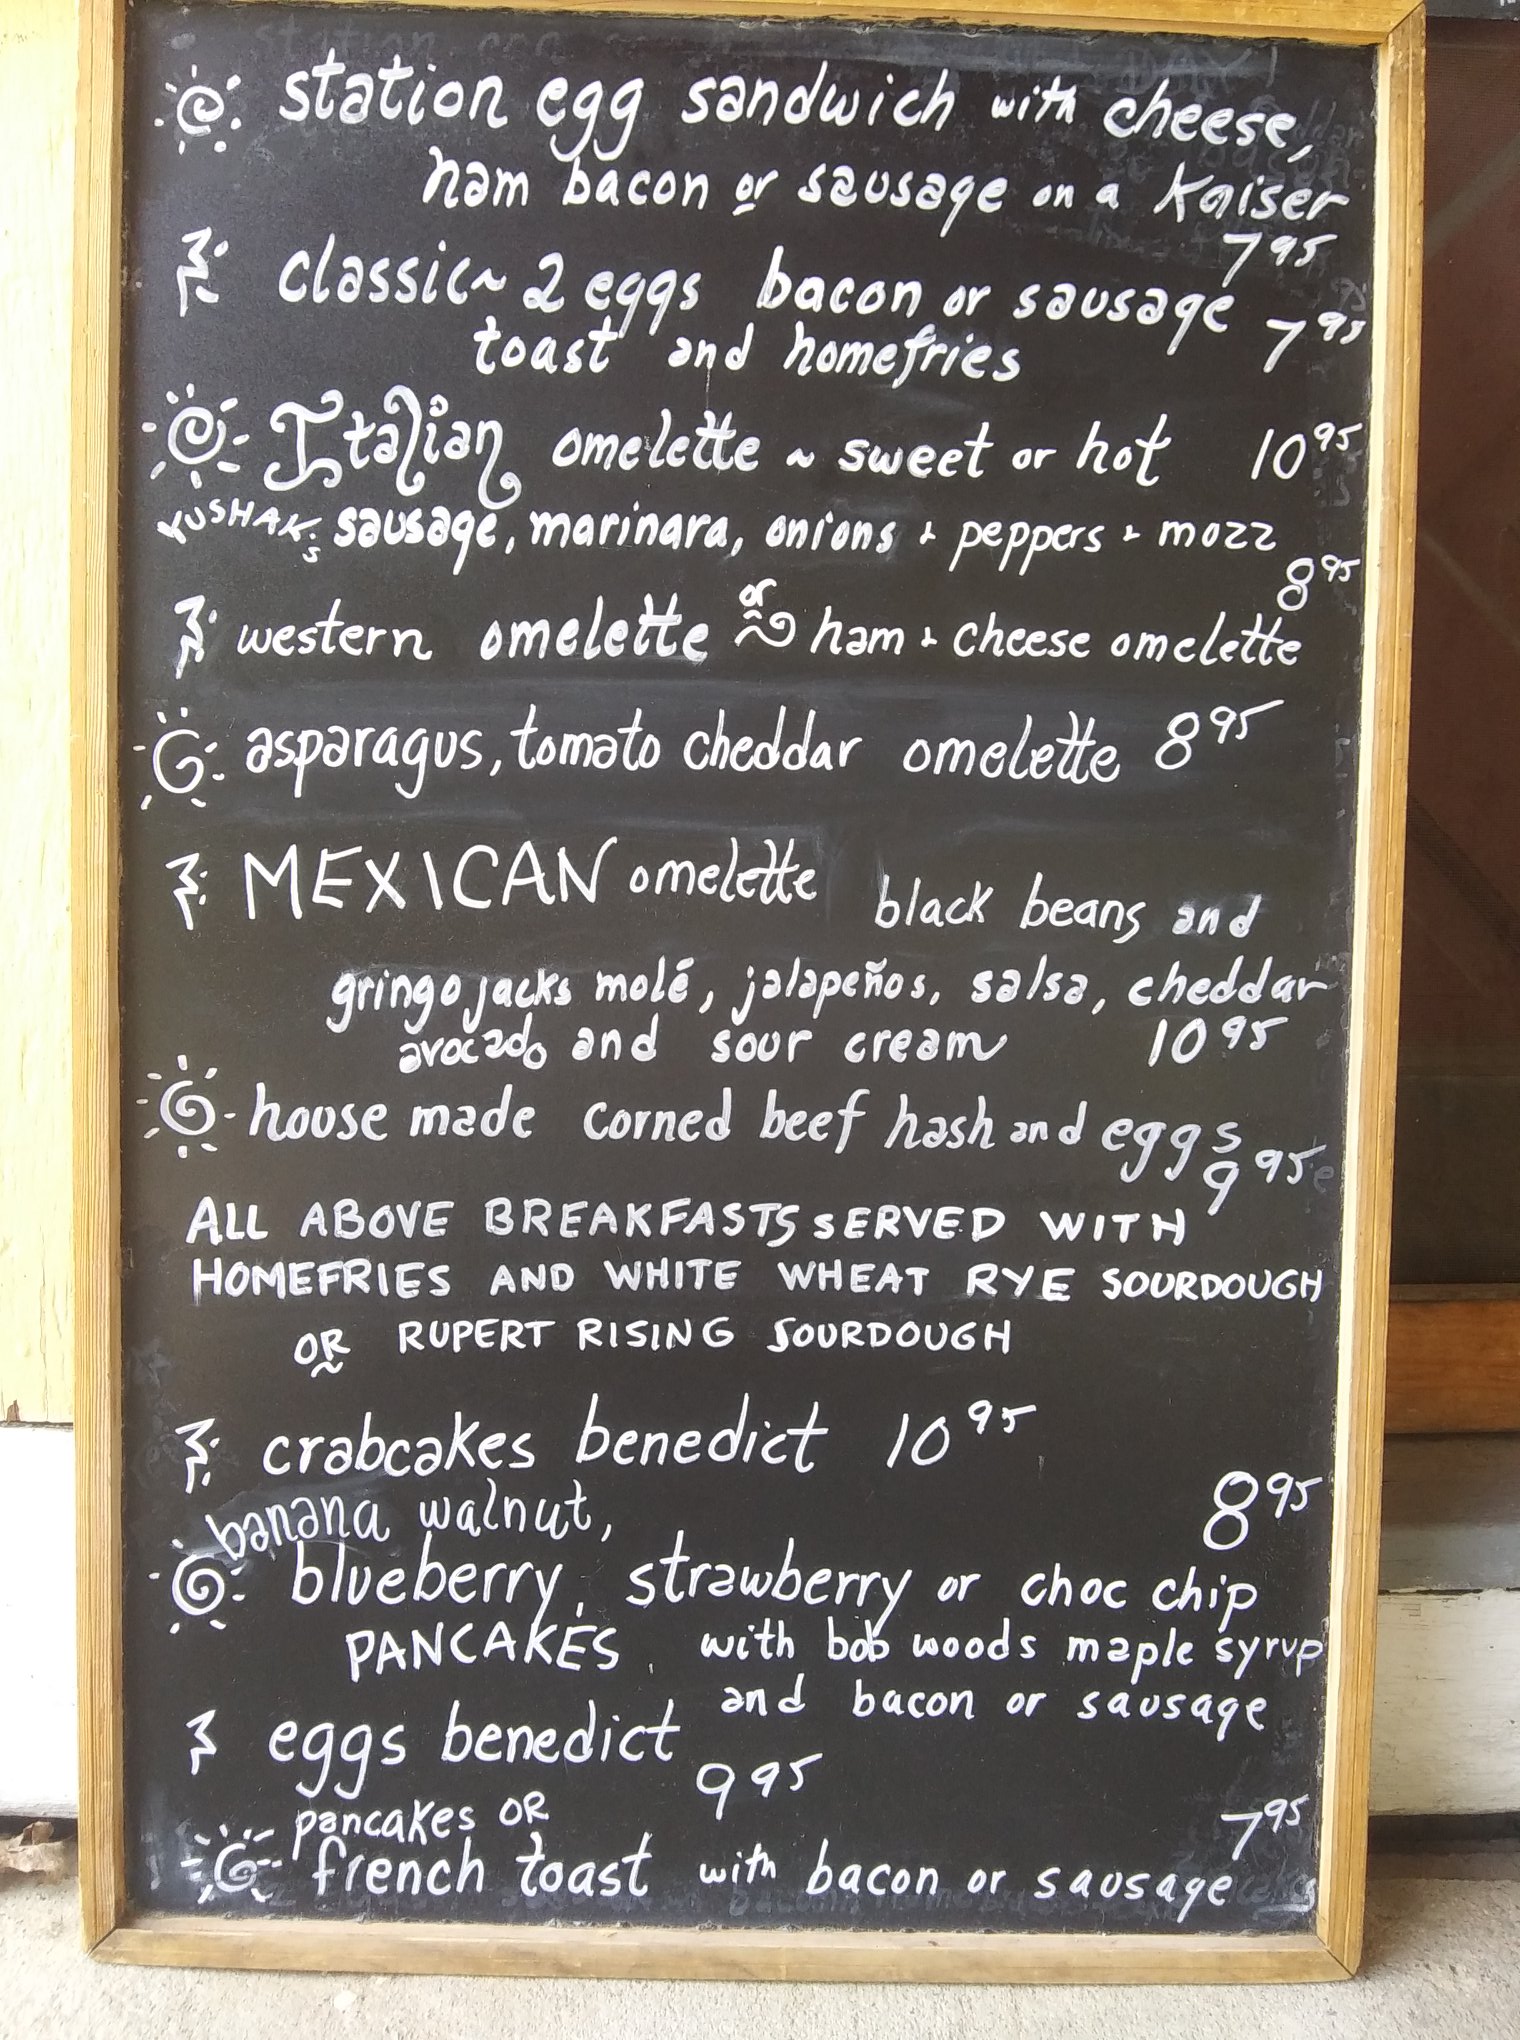 station egg sandwich with cheese,
ham bacon or sausage on a Kaiser
7 95
classic ~ 2 eggs bacon or sausage 7 95
toast and homefries
Italian omelette ~ sweet or hot 10 95
KUSHAK's sausage, marinara, onions + peppers + mozz
8 95
western omelette or ~ ham + cheese omelette
asparagus, tomato cheddar omelette 8 95
MEXICAN omelette black beans and
gringo jacks molé, jalapeños, salsa, cheddar
avocado and sour cream 10 95
house made corned beef hash and eggs
9 95
ALL ABOVE BREAKFASTS SERVED WITH
HOMEFRIES AND WHITE WHEAT RYE SOURDOUGH
OR RUPERT RISING SOURDOUGH
crabcakes benedict 10 95
banana walnut, 8 95
blueberry, strawberry or choc chip
PANCAKES with bob woods maple syrup
and bacon or sausage
eggs benedict
9 95
pancakes OR 7 95
french toast with bacon or sausage